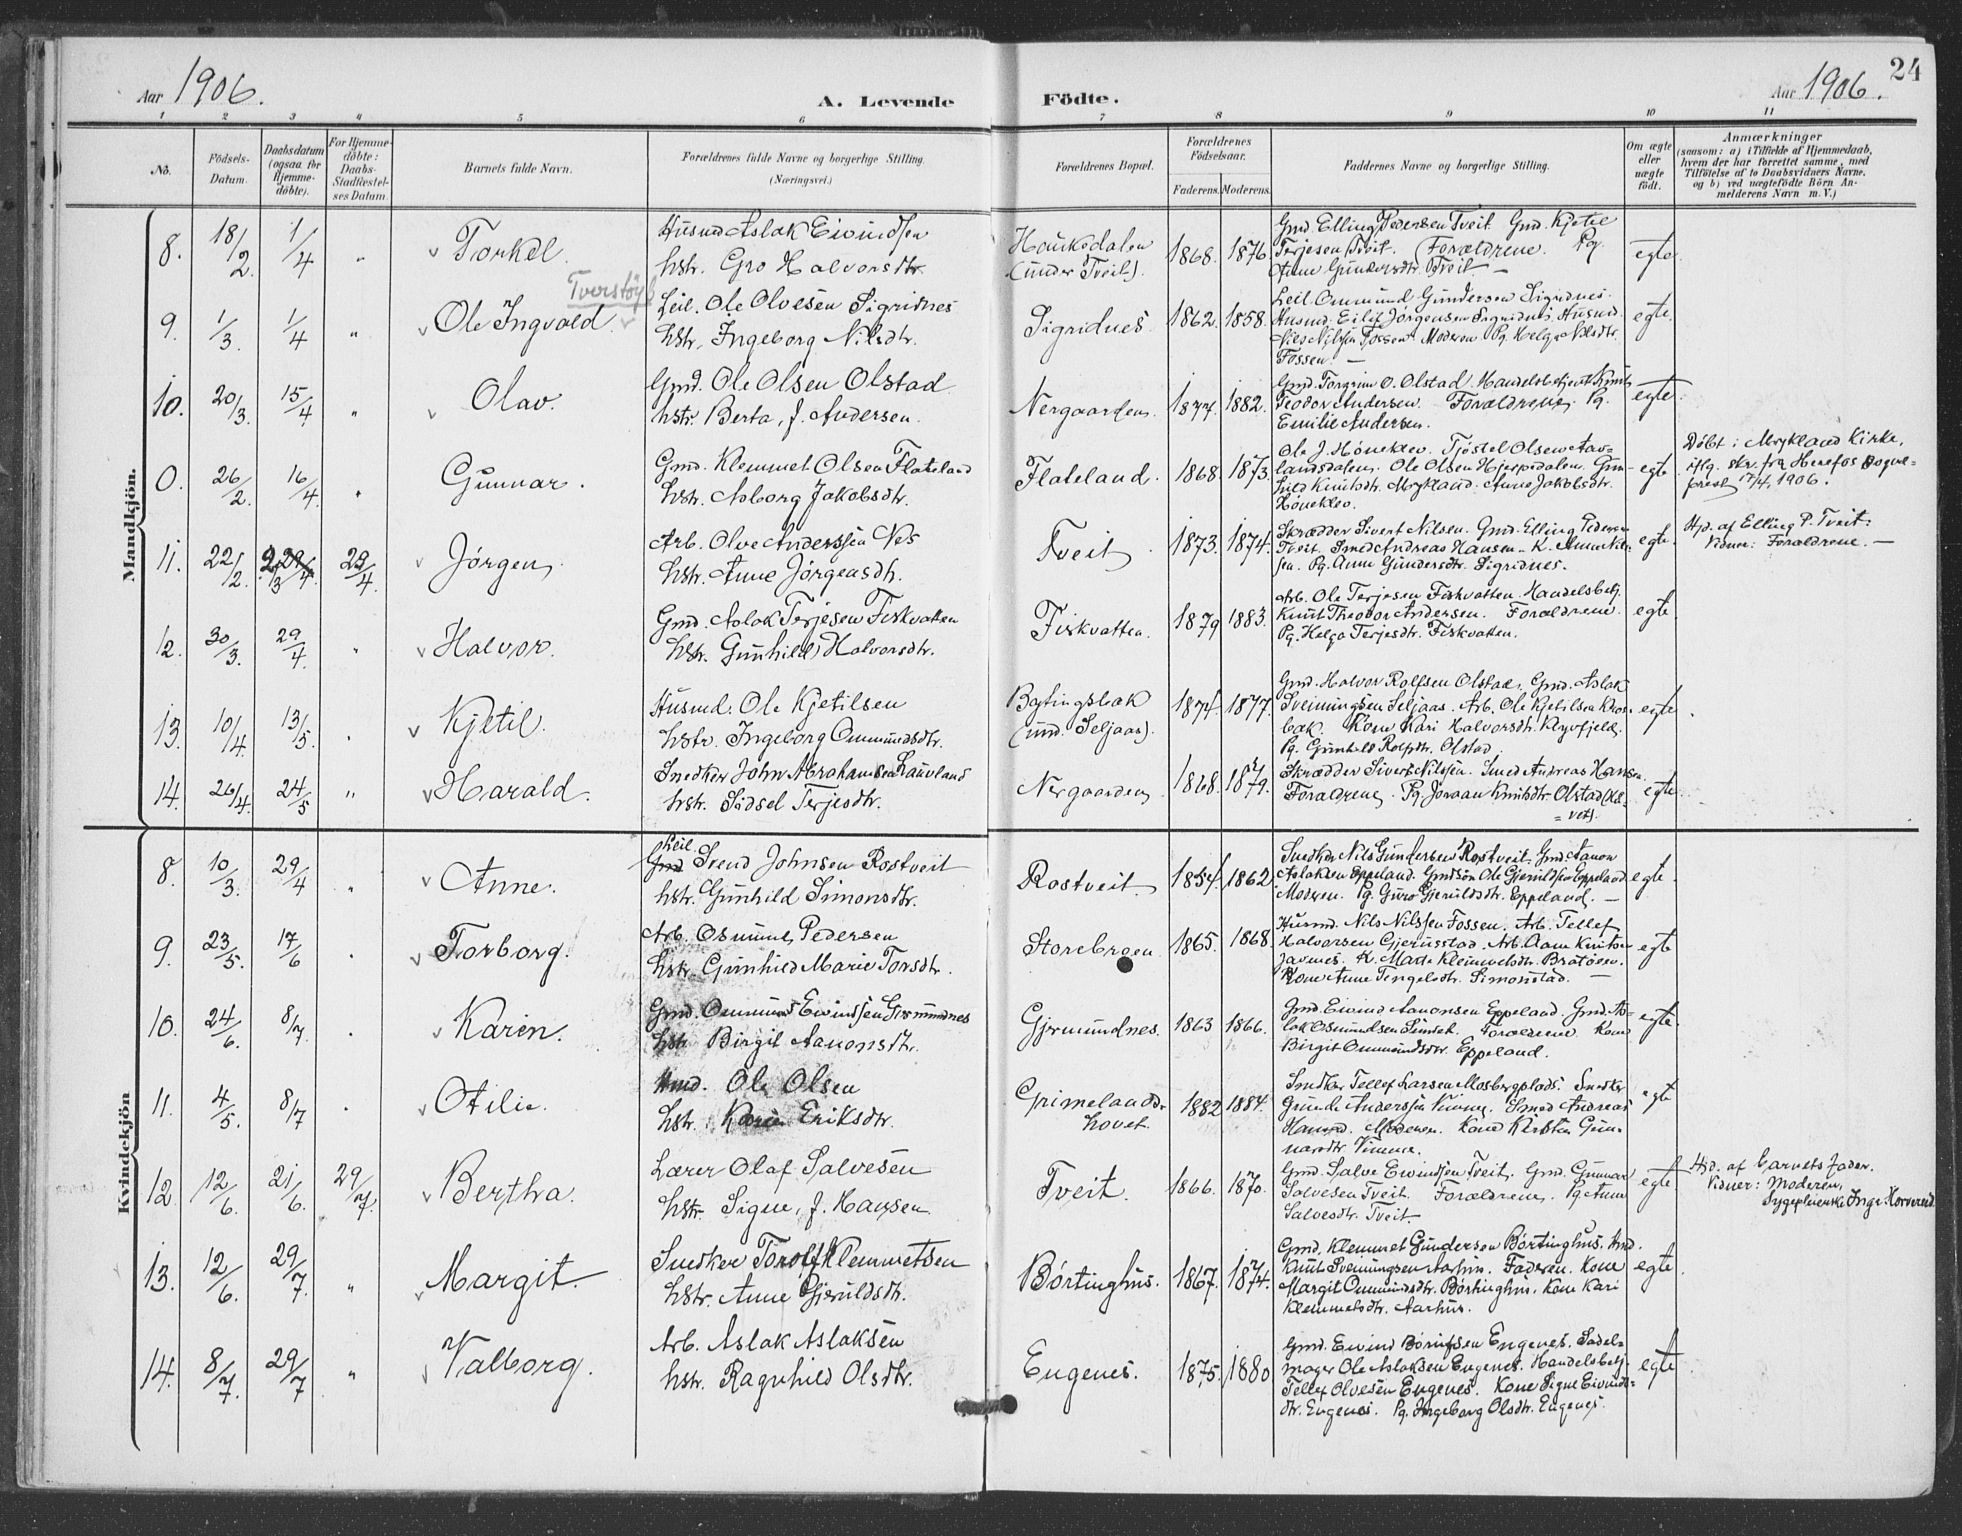 24
Aar 1906.
A. Levende Födte.
Aar 1906.
1 2 3 4 5 6 7 8 9 10 11
No.
Födsels-Datum.
Daabsdatum (ogsaa for Hjemme-döbte).
For Hjemme-döbte: Daabs-Stadfæstel-ses Datum
Barnets fulde Navn.
Forældrenes fulde Navne og borgerlige Stilling. (Næringsvei.)
Forældrenes Bopæl.
Forældrenes Födselsaar.
Faderens. Moderens.
Faddernes Navne og borgerlige Stilling.
Om ægte eller uægte födt.
Anmærkninger
(saasom: a) i Tilfælde af Hjemmedaab,
hvem der har forrettet samme, med
Tilföielse af to Daabsvidners Navne,
og b) ved uægtefödte Börn An-
melderens Navn m. V.)
Mandkjön.
8. 18/2. 1/4 " Torkel.
Husmd Aslak Eivindsen
hstr. Gro Halvorsdtr.
Haukedalen
(under Tveit).
1868. 1876.
Gmd. Elling Pedersen Tveit Gmd. Kjetil
Terjesen Tveit. Forældrene. Pg.
Anne Gundersdtr. Tveit. —
egte.
Tverstöyl
9. 1/3. 1/4 " Ole Ingvald.
Leil. Ole Olvesen Sigridnes
hstr. Ingeborg Nilsdtr.
Sigridnes.
1862. 1858.
Leil Ommund Gundersen Sigridnes.
Husmd. Eilif Jørgensen Sigridnes, Husmd.
Nils Nilsen Fossen Moderen Pg. Helga Nilsdtr.
Fossen. —
egte.
10. 20/3. 15/4 " Olav.
Gmd. Ole Olsen Olstad
hstr. Berta, f. Andersen.
Nergaarden.
1877. 1882.
Gmd. Torgrim O. Olstad. Handelsbetjent Knut
Teodor Andersen. Forældrene. Pg.
Emilie Andersen.
egte.
0. 26/2. 16/4 " Gunnar.
Gmd. Klemmet Olsen Flateland
hstr. Asborg Jakobsdtr.
Flateland.
1868. 1873.
Ole J. Høneklev. Tjøstel Olsen
landsdalen. Ole Olsen Hjerpedalen. Gun-
hild Knutsdtr. Mykland. Anne Jakobsdtr.
Høneklev.
egte.
Døbt i Mykland Kirke,
iflg. skr. fra Herefos Sogne-
prest 17/4 1906.
11. 22/2. 2/3 29/4 29/4. Jørgen.
Arb. Olve Anderssen Nes
hstr. Anne Jørgensdtr.
Tveit.
1873. 1874.
Skrædder Sivert Nilsen. Gmd. Elling Pedersen
Tveit. Smed Andreas Hansen. K. Anne Nil-
sen. Pg. Anne Gundersdtr. Sigridnes.
egte.
Hjd. af Elling P. Tveit.
Vidner: Forældrene. —
12. 30/3. 29/4. " Halvor.
Gmd. Aslak Terjesen Fiskvatten
hstr. Gunhild Halvorsdtr.
Fiskvatten.
1879 1883.
Arb. Ole Terjesen Fiskvatten. Handelsbetj.
Knut Theodor Andersen. Forældrene.
Pg. Helga Terjesdtr. Fiskvatten.
egte
13. 10/4. 13/5. " Kjetil.
Husmd. Ole Kjetilsen
hstr. Ingeborg Ommundsdtr.
(und. Seljaas).
1874. 1877.
Gmd. Halvor Rolfsen Olstad. Gmd. Aslak
Sveinungsen Seljaas. Arb. Ole Kjetilsen
bak. Kone Kari Halvorsdtr.
Pg. Gunhild Rolfsdtr. Olstad.
egte.
14. 26/4. 24/5 " Harald.
Snedker John Abrahamsen Lauvland
hstr. Sidsel Terjesdtr.
Nergaarden
1868. 1879.
Skrædder Sivert Nilssen. Smed Andreas Hansen.
Forældrene. Pg. Joraan Knutsdtr. Olstad
egte.
Kvindekjön
8. 10/3. 29/4 " Anne.
Leil.
Gmd Svend Johnsen Rostveit
hstr. Gunhild Simonsdtr.
Rostveit
1854. 1862.
Snedker Nils Gundersen Rostveit. Gmd. Aanon
Aslaksen Eppeland. Gmdsøn Ole Gjeruldsen Eppeland
Moderen. Pg. Guro Gjeruldsdtr. Eppeland. —
egte.
9. 23/5. 17/6 " Torborg.
Arb. Osmund Pedersen
hstr. Gunhild Marie Torsdtr.
Storebroen.
1865. 1868.
Husmd. Nils Nilssen Fossen. Arb. Tellef
Halvorsen Gjerusstad. Arb. Aan Knuts-
K. Marte Klemmetsdtr.
Kone Anne Tengelsdtr. Simonstad. —
egte
10. 24/6. 8/7 " Karin.
Gmd. Ommund Eivindsen Gjermundnes
hstr. Birgit Aanonsdtr.
Gjermundnes.
1863 1866.
Gmd. Eivind Aanonsen Eppeland. Gmd. As-
lak Osmundsen Simlet. Forældrene. Kone
Birgit Ommundsdtr. Eppeland.
egte.
11. 4/5. 8/7 " Otilie.
Hmd. Ole Olsen
hstr. Karen Eriksdtr.
Grimelands-
hovet.
1882 1884.
Snedker Tellef Larsen Mosbergplads. Snedker
Grunde Anderssen Vimme. Smed Andreas
Hansen. Moderen. Kone Kirsten Gun-
narsdtr. Vimme.
egte
12. 12/6. 21/6. 29/7. Bertha.
Lærer Olaf Salvesen
hstr. Signe, f. Hansen
Tveit.
1866. 1870.
Gmd. Salve Eivindsen Tveit. Gmd. Gunnar
Salvesen Tveit. Forældrene. Pg Anne
Salvesdtr. Tveit.
egte.
Hjd. af barnets fader.
Vidner: Moderen,
Sygepleierske Inge
13. 12/6. 29/7. " Margit.
Snedker Torolf Klemmetsen
hstr. Anne Gjeruldsdtr.
Børtinghus.
1867. 1874.
Gmd. Klemmet Gundersen Børtinghus. Hmd.
Knut Sveinungsen Aarhus. Faderen. Kone
Margit Ommundsdtr. Børtinghus. Kone Kari
Klemmetsdtr. Aarhus.
egte.
14. 8/7. 29/7 " Valborg.
Arb. Aslak Aslaksen
hstr. Ragnhild Olsdtr.
Eugenes.
1875. 1880
Gmd. Eivind Børufsen Eugenes. Sadel-
mager Ole Aslaksen Eugenes. Handelsbetj.
Tellef Olvesen Eugenes. Kone Signe Eivinds-
dtr. Eugenes. Pg. Ingeborg Olsdtr. Eugenes.
egte